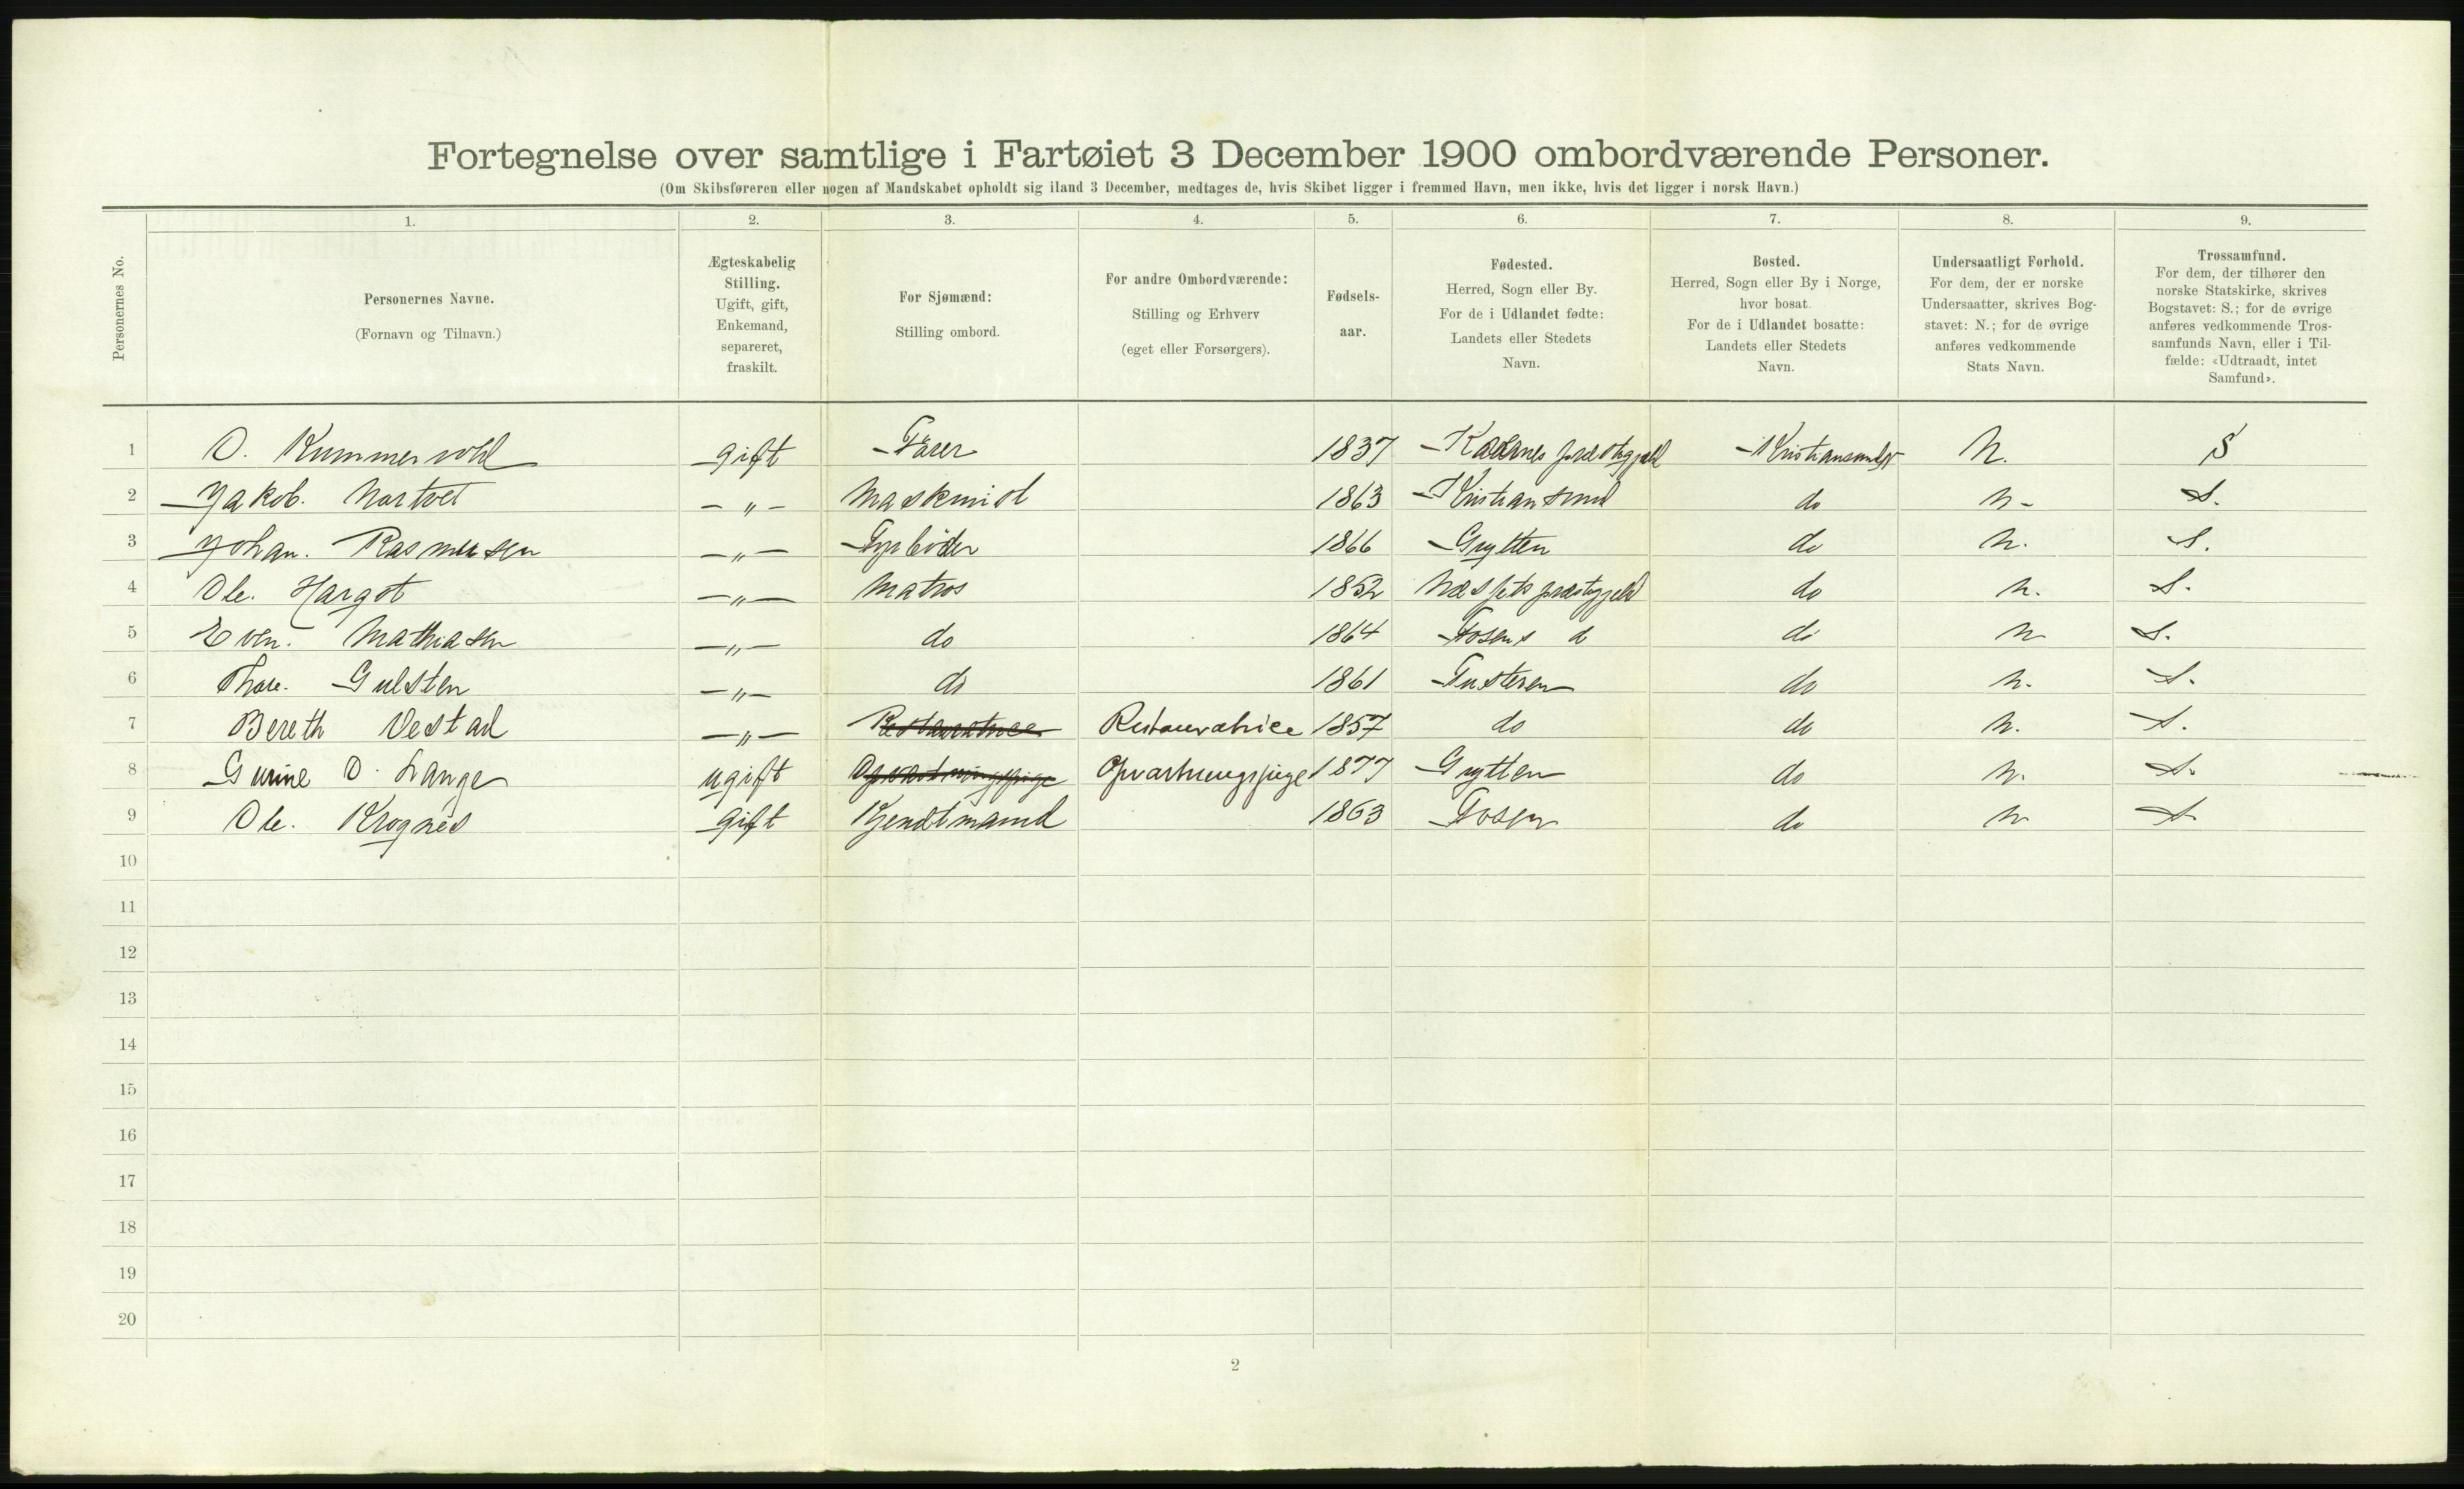 Fortegnelse over samtlige i Fartøiet 3 December 1900 ombordværende Personer.
(Om Skibsføreren eller nogen af Mandskabet opholdt sig iland 3 December, medtages de, hvis Skibet ligger i fremmed Havn, men ikke, hvis det ligger i norsk Havn.)
Personernes No.
1.
Personernes Navne.
(Fornavn og Tilnavn.)
2.
Ægteskabelig
Stilling.
Ugift, gift,
Enkemand,
separeret,
fraskilt.
3.
For Sjømænd:
Stilling ombord.
4.
For andre Ombordværende:
Stilling og Erhverv
(eget eller Forsørgers).
5.
Fødsels-
aar.
6.
Fødested.
Herred, Sogn eller By.
For de i Udlandet fødte:
Landets eller Stedets
Navn.
7.
Bosted.
Herred, Sogn eller By i Norge,
hvor bosat.
For de i Udlandet bosatte:
Landets eller Stedets
Navn.
8.
Undersaatligt Forhold.
For dem, der er norske
Undersaatter, skrives Bog-
stavet: N.; for de øvrige
anføres vedkommende
Stats Navn.
9.
Trossamfund.
For dem, der tilhører den
norske Statskirke, skrives
Bogstavet: S.; for de øvrige
anføres vedkommende Tros-
samfunds Navn, eller i Til-
fælde: «Udtraadt, intet
Samfund».
1 O. Kummervold gift Fører 1837 præstegjeld Kristiansund N. S
2 Jakob. Nortvet — „ — Maskinist 1863 Kristiansund do N- S.
3 Johan. Rasmusen — „ — Fyrbøder 1866 Grytten do N. S.
4 Ole. Hargot — „ — Matros 1852 Næssets præstegjeld do N. S.
5 Even. Mathiasen — „ — do 1864 Fosens d do N S.
6 Thore. Gulsten — „ — do 1861 Tusteren do N. S.
7 Bereth Vestad — „ — Restauratrice Restauratrice 1857 do do N. S.
8 Gurine O. Lange ugift Opvartningspige Opvartningspige 1877 Grytten do N. S.
9 Ole. Krognes gift Kjendtmand 1863 Fosen do N S.
10
11
12
13
14
15
16
17
18
19
20
2